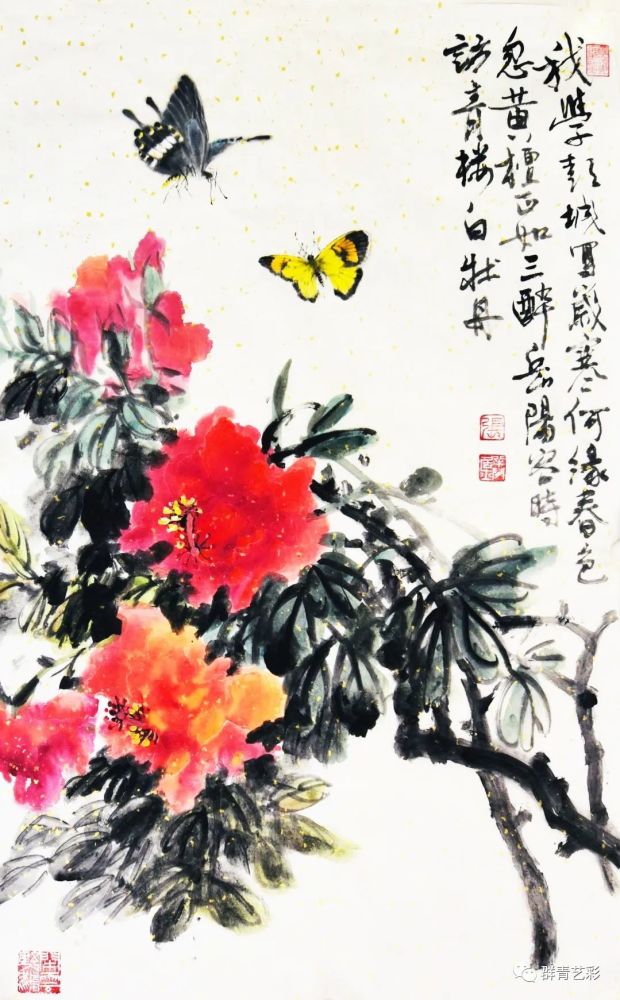 我學彭城寫歲寒何緣春色
忽黄檀正如三醉岳陽客時
訪青樓白牡丹
張
群青艺彩